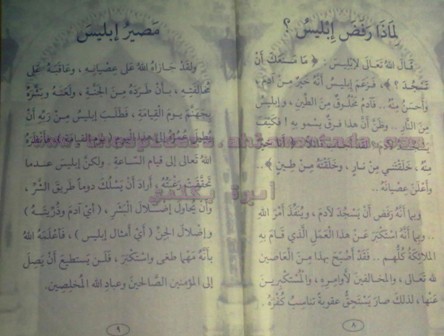 لِمَاذَا رَفَضَ إِبْلِيسُ ؟
قَالَ اللهُ تَعَالَى لإِبْلِيسَ: ﴿ مَا مَنَعَكَ أَنْ
تَسْجُدَ ؟ ﴾، فَزَعَمَ إِبْلِيسُ أَنَّهُ خَيْرٌ مِنْ آدَمَ،
وَأَحْسَنُ مِنْهُ.. فَآدَمُ مَخْلُوقٌ مِنَ الطِّينِ، وَإِبْلِيسُ
مِنَ النَّارِ.. وَظَنَّ أَنَّ هَذَا فَرْقٌ يَسْمُو بِهِ ! فَكَيْفَ
مِنْهُ، خَلَقْتَنِي مِنْ نَارٍ، وَخَلَقْتَهُ مِنْ طِينٍ ﴾..
وَأَعْلَنَ عِصْيَانَهُ..
وَبِمَا أَنَّهُ رَفَضَ أَنْ يَسْجُدَ لآدَمَ، وَيُنَفِّذَ أَمْرَ اللهِ
.. وَبِمَا أَنَّهُ اسْتَكْبَرَ عَنْ هَذَا العَمَلِ الَّذِي قَامَ بِهِ
المَلائِكَةُ كُلُّهُم .. فَقَدْ أَصْبَحَ بِهَذَا مِنَ العَاصِينَ
للهِ تَعَالَى، وَالمُخَالِفِينَ لأَوَامِرِهِ، وَالمُسْتَكْبِرِينَ
عَنْهَا، لِذَلِكَ صَارَ يَسْتَحِقُّ عُقُوبَةً تُنَاسِبُ كُفْرَهُ .
٨
مَصِيرُ إِبْلِيسَ
وَلَقَدْ جَازَاهُ اللهُ عَلَى عِصْيَانِهِ، وَعَاقَبَهُ عَلَى
مُخَالَفَتِهِ، بِأَنْ طَرَدَهُ مِنَ الجَنَّةِ، وَلَعَنَهُ وَبَشَّرَهُ
بِجَهَنَّمَ يَوْمَ القِيَامَةِ، فَطَلَبَ إِبْلِيسُ مِنْ رَبِّهِ أَنْ
إِلَى هَذَا اليَوْمِ (يوم القيامة) فَأَنْظَرَهُ
اللهُ تَعَالَى إِلَى قِيَامِ السَّاعَةِ . وَلَكِنَّ إِبْلِيسَ عِنْدَمَا
تَحَقَّقَتْ رَغْبَتُهُ، أَرَادَ أَنْ يَسْلُكَ دَوْماً طَرِيقَ الشَّرِّ،
وَأَنْ يُحَاوِلَ إِضْلالَ البَشَرِ، (أي آدم وذُرِّيَّته)
وَإِضْلالَ الجِنِّ (أي أمثال إبليس)، فَأَعْلَمَهُ اللهُ
بِأَنَّهُ مَهْمَا طَغَى وَاسْتَكْبَرَ، فَلَنْ يَسْتَطِيعَ أَنْ يَصِلَ
إِلَى المُؤْمِنِينَ الصَّالِحِينَ وَعِبَادِ اللهِ المُخْلِصِينَ.
٩